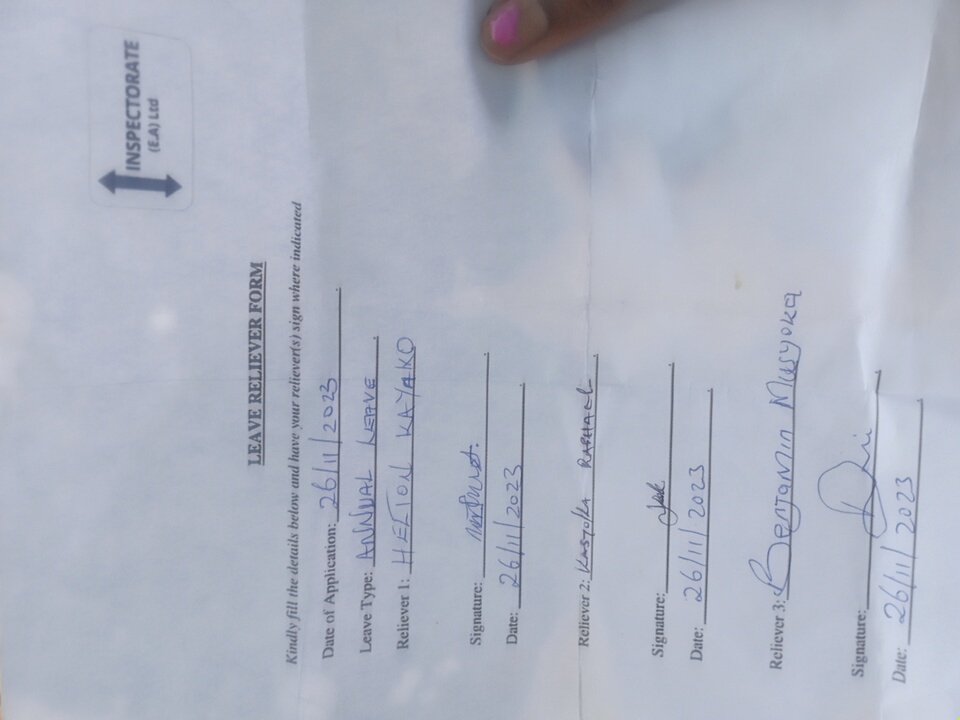 INSPECTORATE
(E.A) Ltd
LEAVE RELIEVER FORM
Kindly fill the details below and have your reliever(s) sign where indicated
Date of Application: 26/11/2023.
Leave Type: ANNUAL LEAVE.
Reliever 1: HELTON KAYAKO
Signature:
Date: 26/11/2023.
Reliever 2: KASYOKA RAPHAEL.
Signature:
Date: 26/11/2023.
Reliever 3: Benjamin Musyoka
Signature:
Date: 26/11/2023.